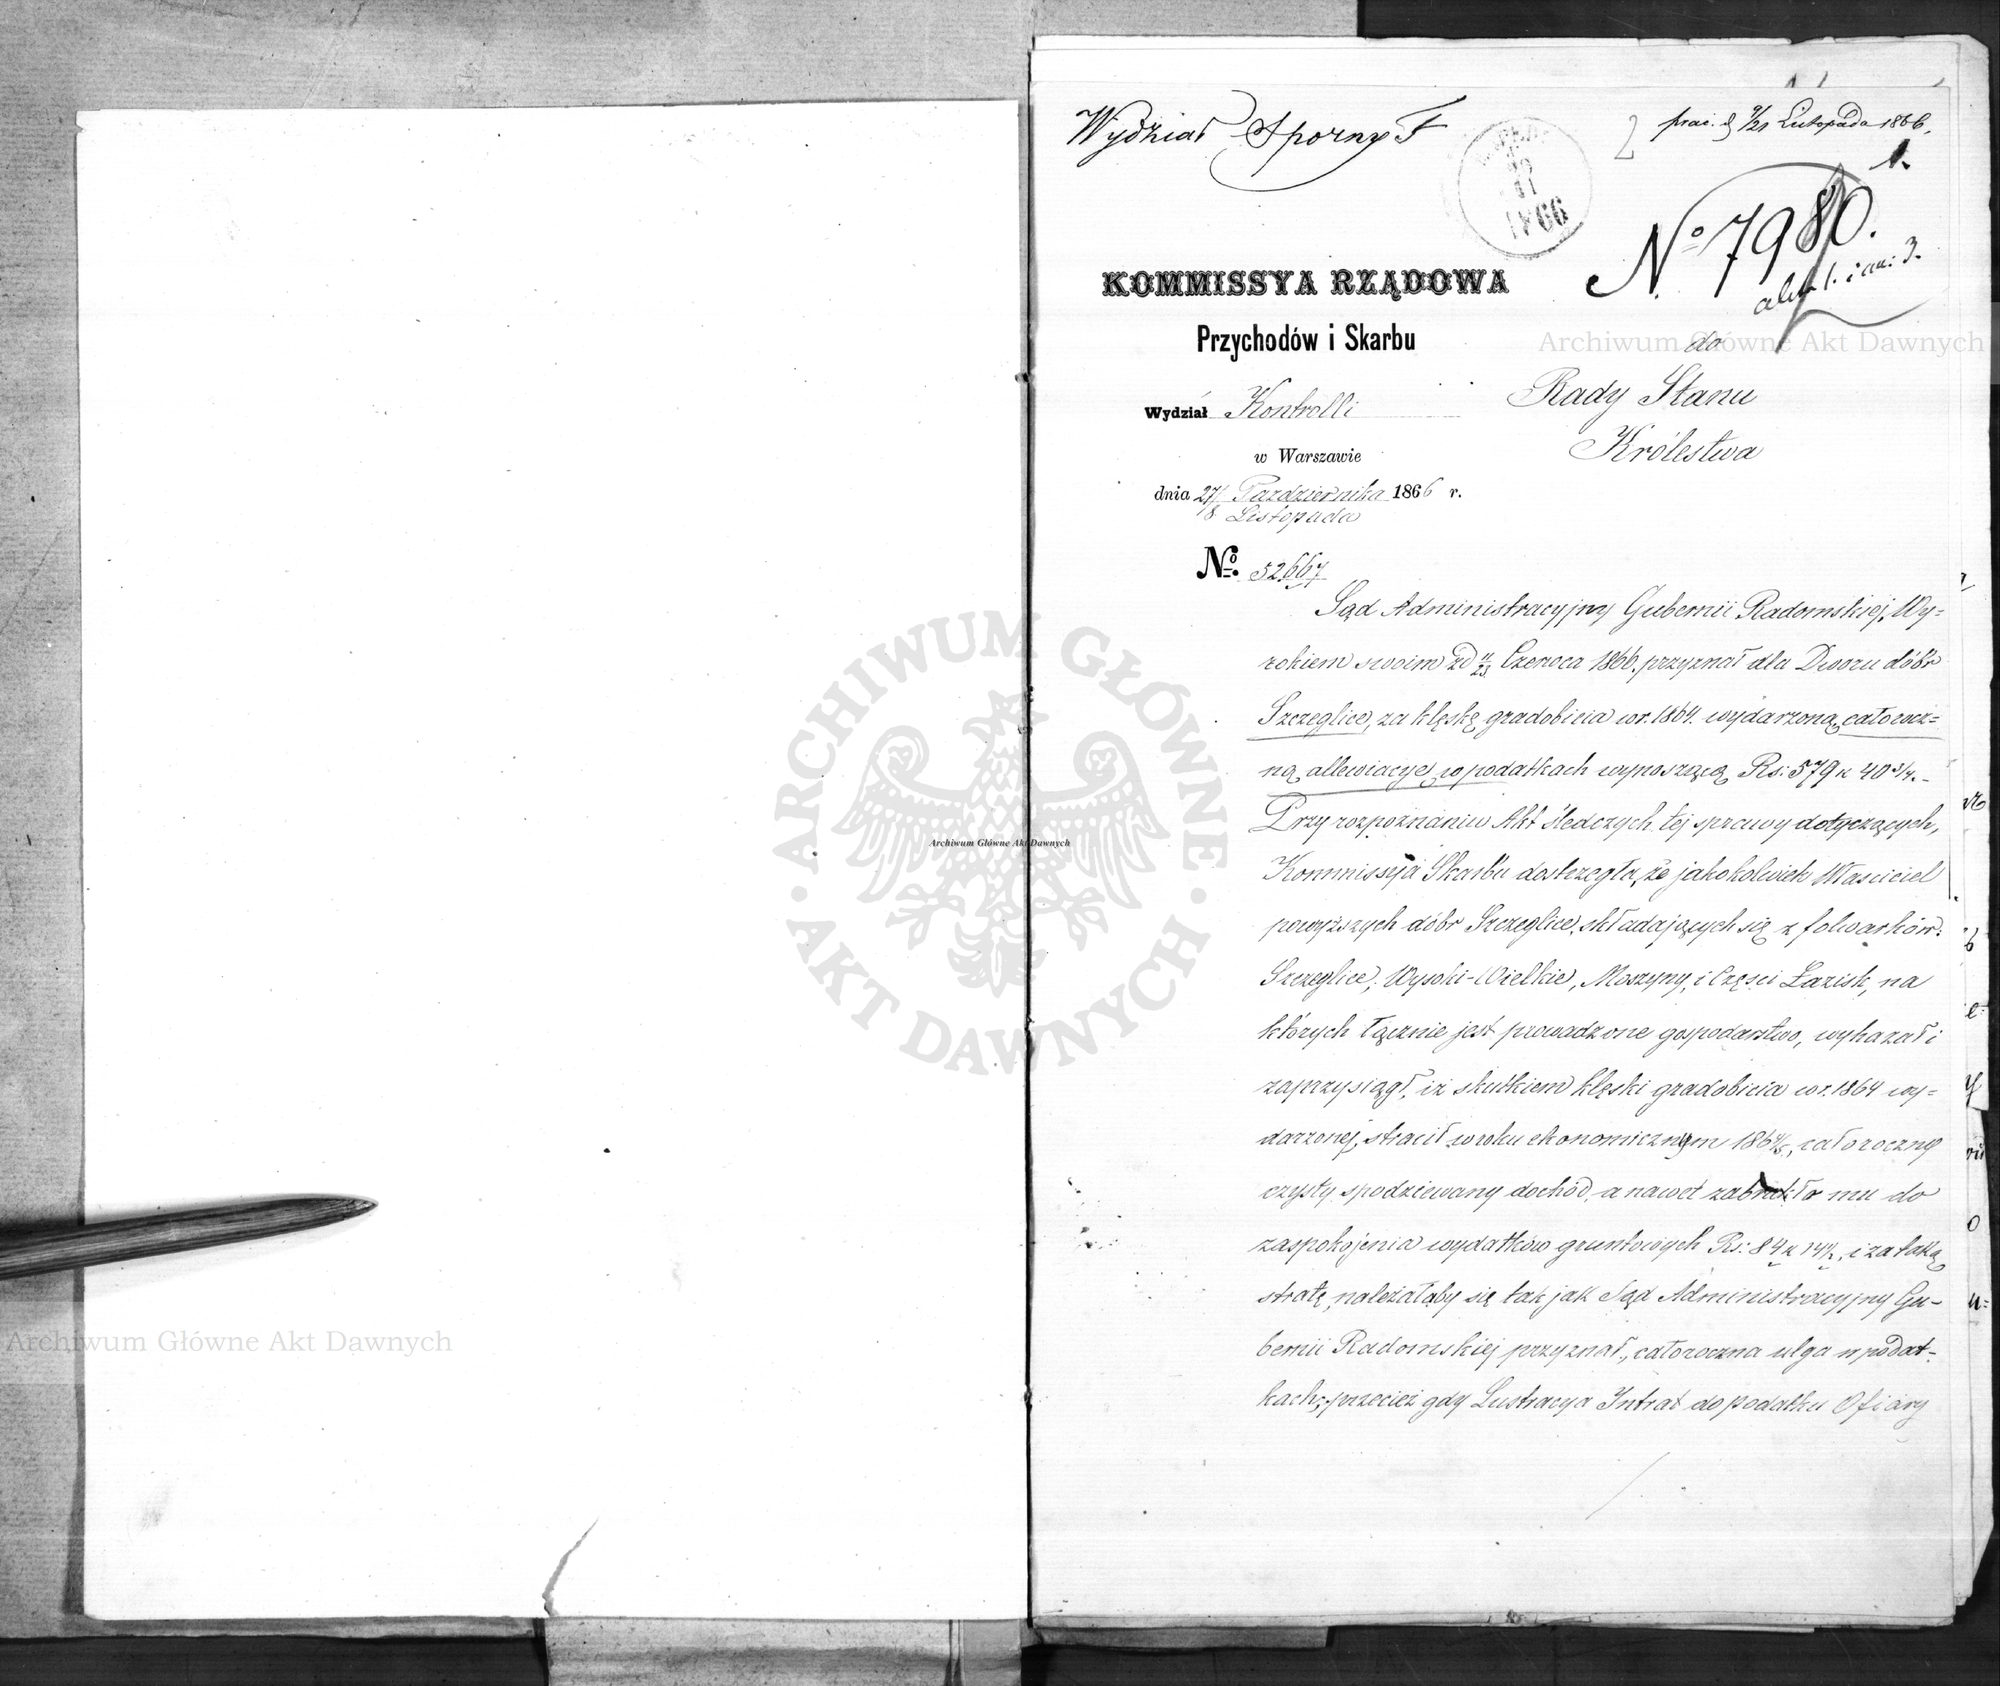 Wydział Sporny F
prac. d 9/21 Listopada 1866.
1.
2
1866
No 7980.
KOMMISSYA RZĄDOWA
Przychodów i Skarbu
do
Rady Stanu
Królestwa
Wydział Kontrolli
w Warszawie
dnia 27/ Października 1866 r.
/8 Listopada
No. 52667
Sąd Administracyjny Gubernii Radomskiej, Wy=
rokiem swoim zd 11/23 Czerwca 1866. przyznał dla Dworu dóbr
Szczeglice, za klęskę gradobicia w r. 1864. wydarzoną, całorocz=
ną allewiacyę w podatkach wynoszącą Rs: 579 k 40 3/4.-
Przy rozpoznaniu Akt śledczych tej sprawy dotyczących,
Kommissyja Skarbu dostrzegła, że jakokolwiek Właściciel
powyższych dóbr Szczeglice, składających się z folwarków:
Szczeglice, Wysoki-Wielkie, Moszyny, i Części Łazisk, na
których łącznie jest prowadzone gospodarstwo, wykazał i
zaprzysiągł, iż skutkiem klęski gradobicia w r. 1864 wy=
darzonej, stracił w roku ekonomicznym 1864/5, całoroczny
czysty spodziewany dochód, a nawet zabrakło mu do
zaspokojenia wydatków gruntowych Rs: 84 k 14 1/2, i za taką
stratę, należałaby się tak, jak Sąd Administracyjny Gu-
bernii Radomskiej przyznał, całoroczna ulga w podat-
kach; przecież gdy Lustracya Intrat do podatku Ofiary
Archiwum Główne Akt Dawnych
ARCHIWUM GŁÓWNE · AKT DAWNYCH ·
Archiwum Główne Akt Dawnych
Archiwum Główne Akt Dawnych